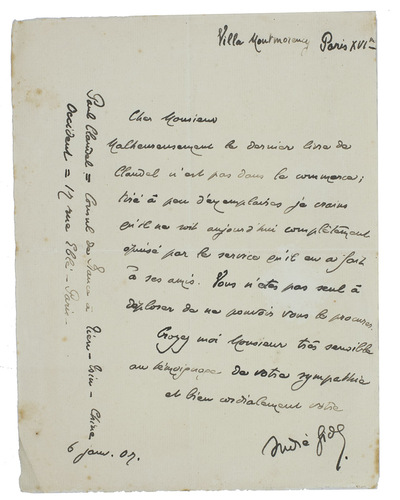 Villa Montmorency Paris XVIe
Cher Monsieur
Malheureusement le dernier livre de
Claudel n'est pas dans le commerce;
tiré à peu d'exemplaires je crains
qu'il ne soit aujourd'hui complètement
épuisé par le service qu'il en a fait
à ses amis. Vous n'êtes pas seul à
déplorer de ne pouvoir vous le procurer.
Croyez moi Monsieur très sensible
au témoignage de votre sympathie
et bien cordialement votre
André Gide
Paul Claudel = Consul de France à Tien-Tsin - Chine
Occident = 17 rue Eblé - Paris -
6 janv. 07.